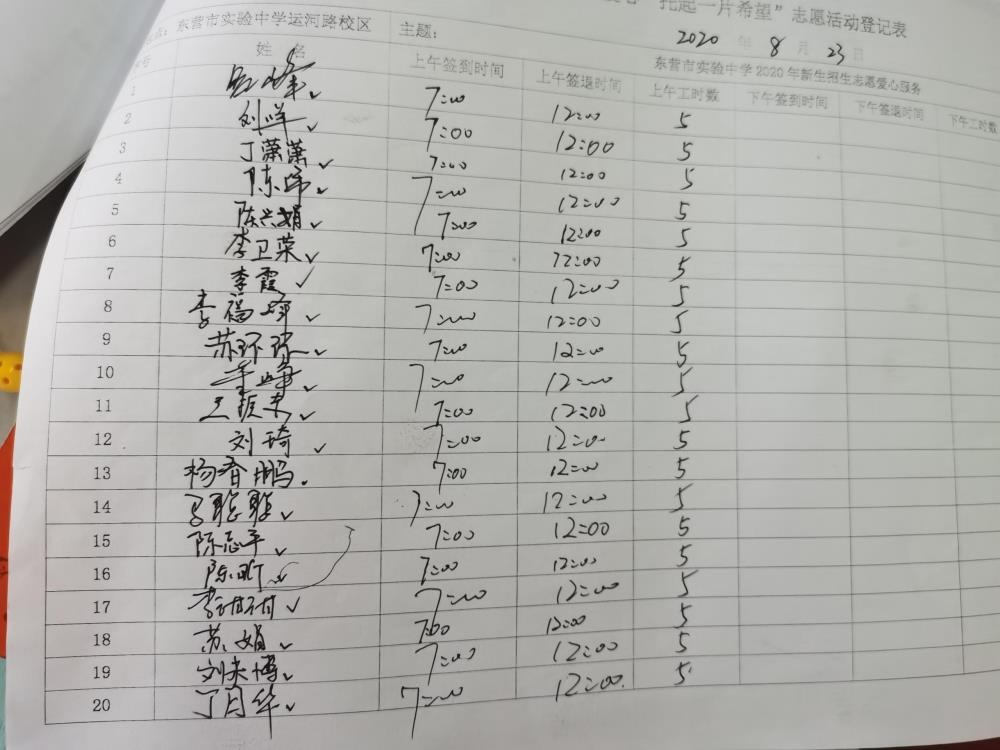 托起一片希望”志愿活动登记表
东营市实验中学运河路校区 主题：
2020 年 8 月 23 日
东营市实验中学2020年新生招生志愿爱心服务
姓 名 上午签到时间 上午签退时间 上午工时数 下午签到时间 下午签退时间 下午工时数
1 7:00 12:00 5
2 刘洋 7:00 12:00 5
3 丁潇潇 7:00 12:00 5
4 陈 7:00 12:00 5
5 陈兴娟 7:00 12:00 5
6 李卫荣 7:00 12:00 5
7 李霞 7:00 12:00 5
8 李福峰 7:00 12:00 5
9 苏环 7:00 12:00 5
10 7:00 12:00 5
11 王 7:00 12:00 5
12 刘琦 7:00 12:00 5
13 杨春鹏 7:00 12:00 5
14 聪聪 7:00 12:00 5
15 陈志平 7:00 12:00 5
16 陈 7:00 12:00 5
17 李 7:00 12:00 5
18 苏娟 7:00 12:00 5
19 刘 博 7:00 12:00 5
20 丁月华 7:00 12:00 5